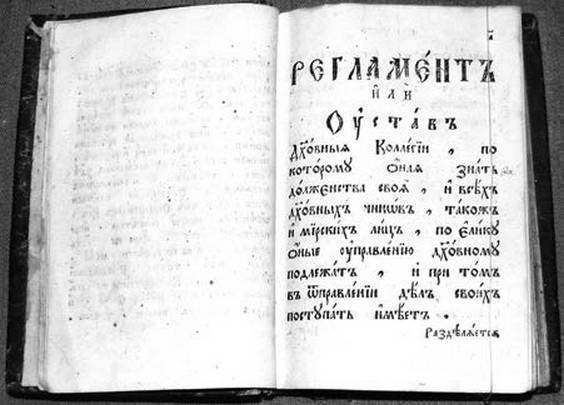 РЕГЛАМЕ́НТЪ
и҆лѝ
Оу҆ста́въ
Дх҃о́вныѧ Колле́гїи , по
кото́рому ѻ҆́наѧ зна́ть
до́лженства своѧ̀ , и҆ всѣ́хъ
дх҃о́вныхъ чинѡ́въ , та́кожъ
и҆ мїрски́хъ ли́цъ , по є҆ли́ку
ѻ҆́ные оу҆правле́нїю дх҃о́вному
подлежа́тъ , и҆ при то́мъ
въ ѿправле́нїи дѣ́лъ свои́хъ
поступа́ть и҆мѣ́етъ .
Раздѣлѧ́етсѧ